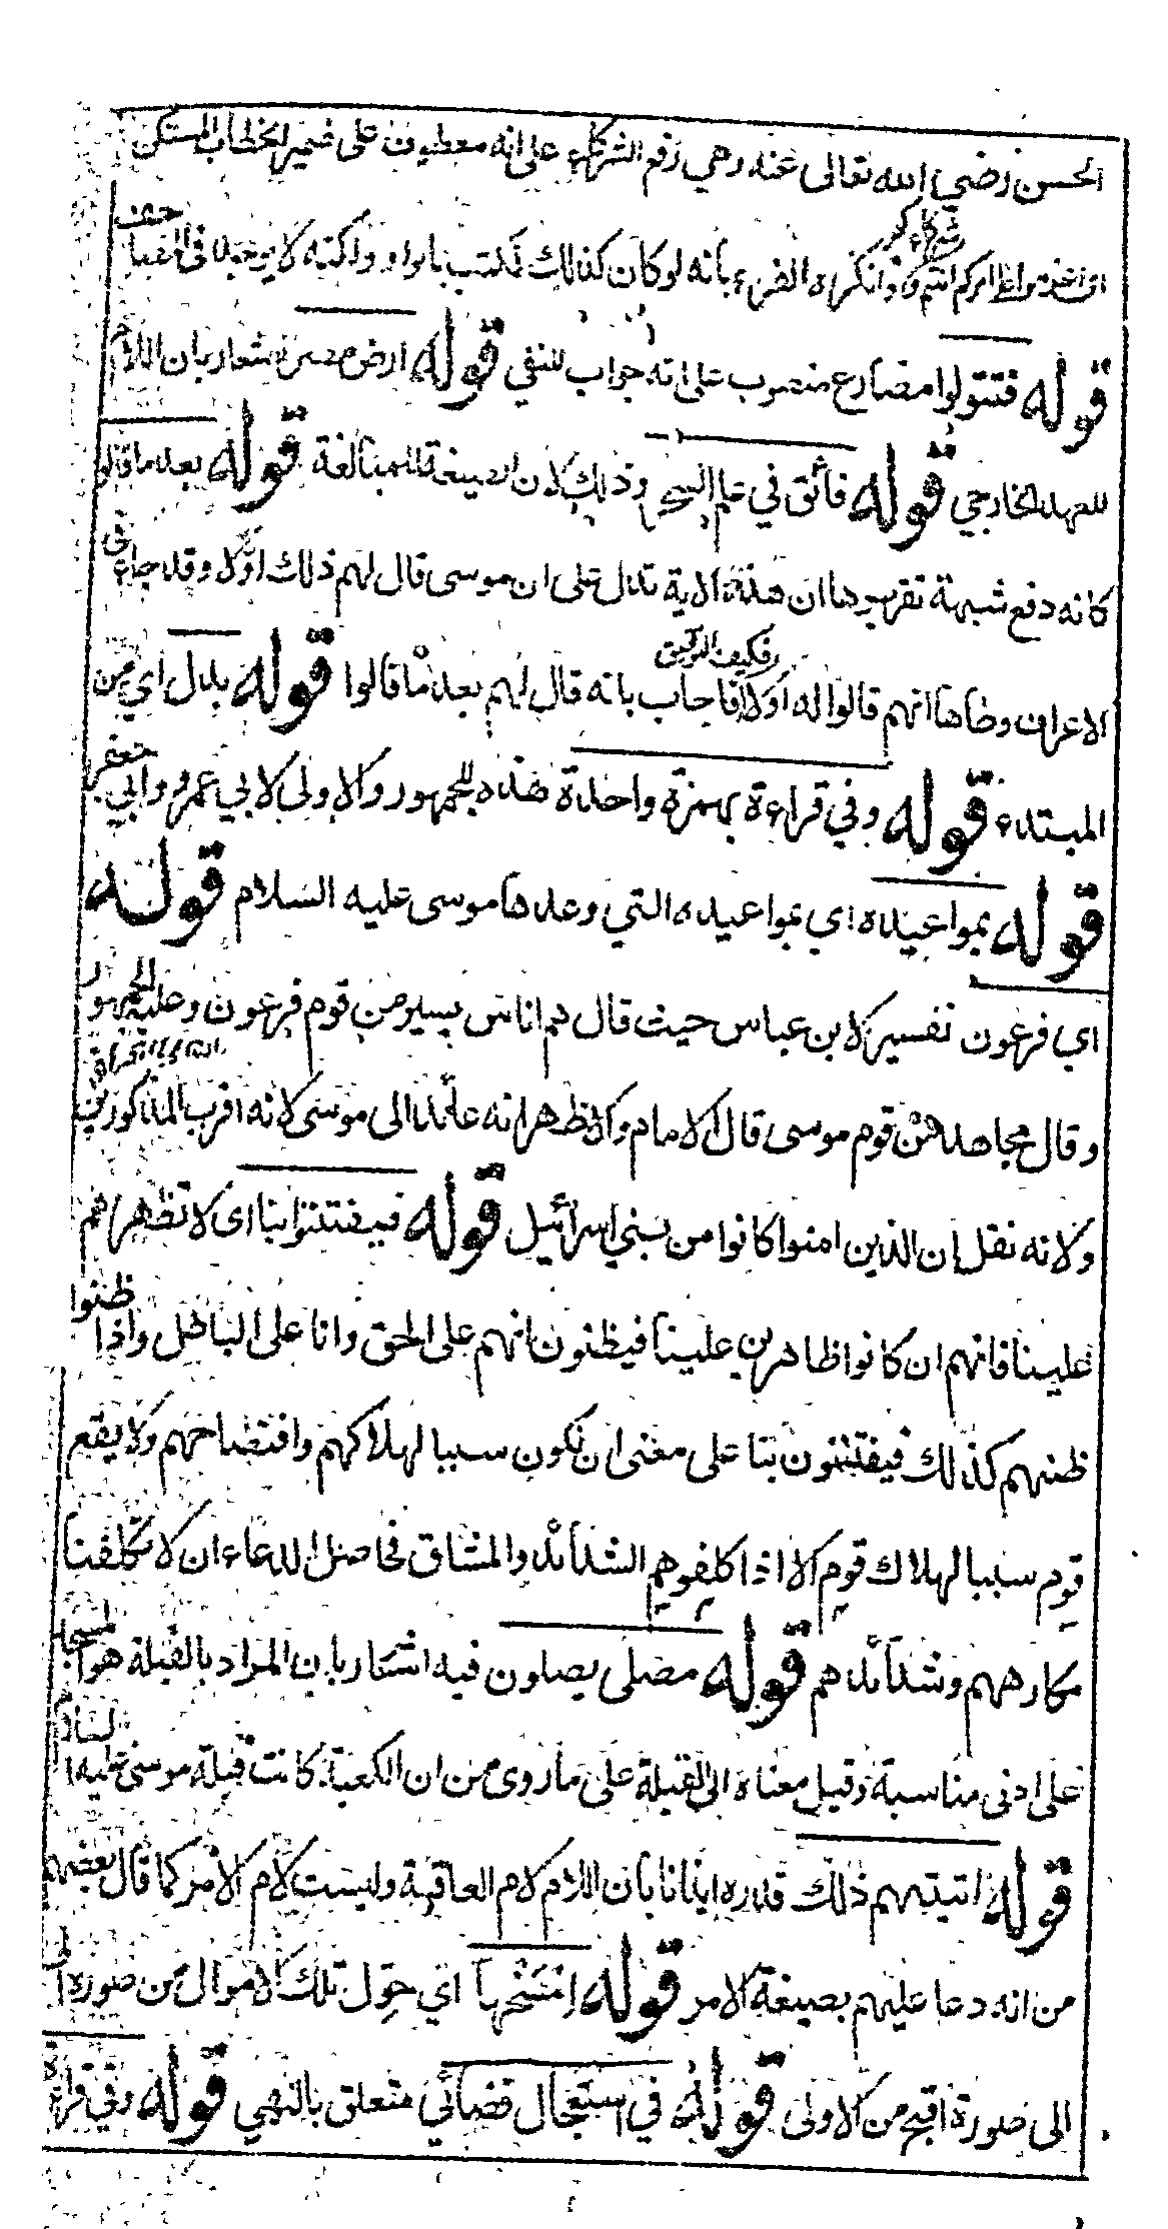 الحسن رضي الله تعالى عنه وهي رفع الشركاء على انه معطوف على ضمير الخطاب المستكن
اي اعزموا امركم انتم وانكره الفراء بانه لو كان كذلك لكتب بالواو ولكنه لا يوجد في المصاحف
شركاءكم
قوله فتتولوا مضارع منصوب على انه جواب للنفي قوله ارض مصر اشعار بان اللام
للعهد الخارجي قوله فائق في علم السحر وذلك لان الصيغة للمبالغة قوله بعد ما قالوا
كانه دفع شبهة تقريرها ان هذه الاية تدل على ان موسى قال لهم ذلك اولا وقد جاء في
الاعراف وطاها انهم قالوا له اولا فاجاب بانه قال لهم بعد ما قالوا قوله بدل اي من
فكيف التوفيق
المبتدء قوله وفي قراءة بهمزة واحدة هذه للجمهور والاولى لابي عمرو وابي جعفر
قوله بمواعيده اي بمواعيده التي وعدها موسى عليه السلام قوله
اي فرعون تفسير لابن عباس حيث قال هم اناس يسير من قوم فرعون وعليه الجمهور
وقال مجاهد من قوم موسى قال الامام والاظهر انه عائد الى موسى لانه اقرب المذكورين
ولانه نقل ان الذين امنوا كانوا من بني اسرائيل قوله فيفتتنوا بنا اى لا تظهرهم
علينا فانهم ان كانوا ظاهرين علينا فيظنون انهم على الحق وانا على الباطل واذا ظنوا
ظنهم كذلك فيفتتنون بنا على معنى ان نكون سببا لهلاكهم وافتضاحهم ولا يقع
قوم سببا لهلاك قوم الا اذا كلفوهم الشدائد والمشاق فحاصل الدعاء ان لا تكلفنا
مكارههم وشدائدهم قوله مصلى يصلون فيه اشعار بان المراد بالقبلة هو المسجد
على ادنى مناسبة وقيل معناه الى القبلة على ما روى من ان الكعبة كانت قبلة موسى عليه السلام
قوله اتيتهم ذلك قدره ايذانا بان اللام لام العاقبة وليست لام الامر كما قال بعضهم
من انه دعا عليهم بصيغة الامر قوله امسخها اي حول تلك الاموال من صورة
الى صورة اقبح من الاولى قوله في استعجال قضائي متعلق بالنهي قوله وفي قراءة